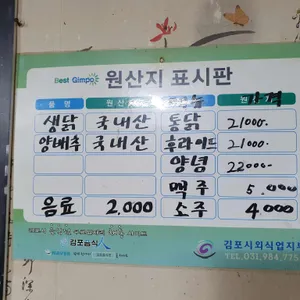 Best Gimpo 원산지 표시판
품명 원산지
생닭 국내산 통닭 21000
양배추 국내산 후라이드 21000
양념 22000
맥주 5.000
음료 2.000 소주 4000
김포시외식업지부
TEL.031.984.775